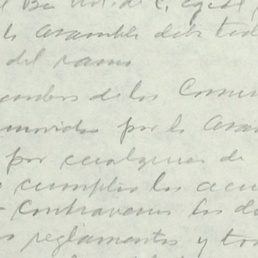 la asamblea debe tod
del ramo
miembros de los Comi
movidos por la asam
por cualquiera de
cumplir los acue
contravenir los di
os reglamentos y to